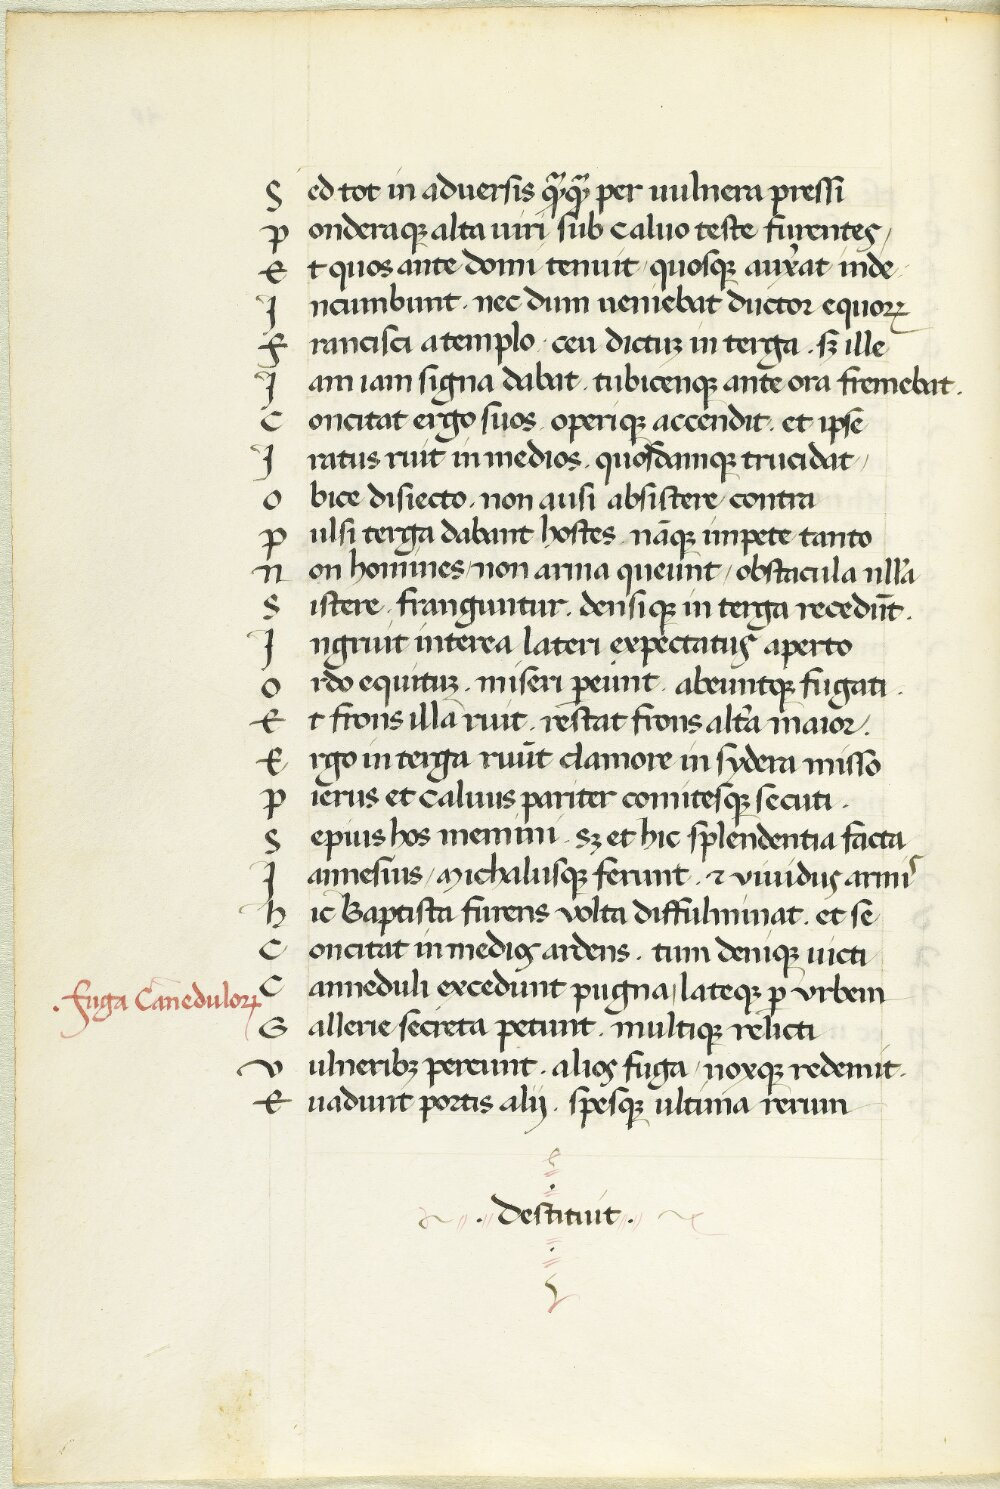 Sed tot in adversis qͣqͣ per uulnera pressi
Ponderaqꝫ alta uiri sub caluo teste furentes /
Et quos ante domi tenuit / quosqꝫ aux̓at inde /
Incumbunt . nec dum ueniebat ductor equoꝝ
Francisci a templo . ceu dictuꝫ in terga . sꝫ ille
Iam iam signa dabat . tubicenqꝫ ante ora fremebat .
Concitat ergo suos . operiqꝫ accendit . et ipse
Iratus ruit in medios . quosdamqꝫ trucidat //
Obice disiecto . non ausi absistere contra
Pulsi terga dabant hostes . nāqꝫ impete tanto
Non homines / non arma queunt / obstacula ulla
Sistere . franguntur . densiqꝫ in terga recedūt .
Ingruit interea lateri expectatus aperto
Ordo equituꝫ . miseri ꝑeunt . abeuntqꝫ fugati .
Et frons illa ruit . restat frons alt̓a maior .
Ergo in terga ruūt clamore in sydera misso
Pierius et Caluus pariter comitesqꝫ secuti .
Sepius hos memini . sꝫ et hic splendentia facta
Iannesius / Michalusqꝫ ferunt . ⁊ viuidus armis
Hic Baptista furens volta diffulminat . et se
Concitat in medios ardens . tum deniqꝫ uicti
.Fuga Cānedulorꝝ
Canneduli excedunt pugna / lateqꝫ ꝑ vrbem
Gallerie secreta petunt . multiqꝫ relicti
Vulneribꝫ pereunt . alios fuga / noxqꝫ redemit .
Euadunt portis alij . spesqꝫ ultima rerum
. Destituit .